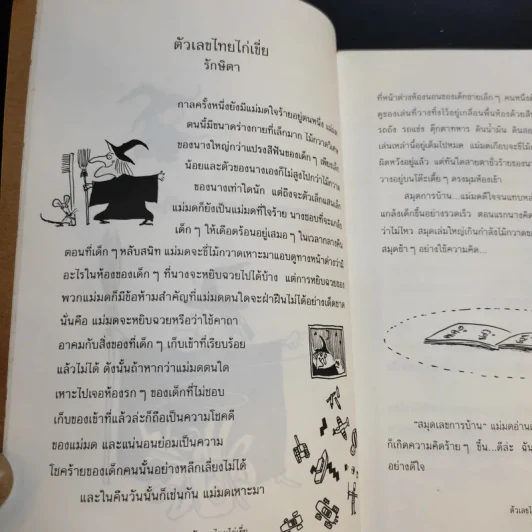 ตัวเลขไทยไก่เขี่ย
รักษิตา
กาลครั้งหนึ่งยังมีแม่มดใจร้ายอยู่ตนหนึ่ง แม่มด
ตนนี้มีขนาดร่างกายที่เล็กมาก ไม้กวาดวิเศษ
ของนางใหญ่กว่าแปรงสีฟันของเด็ก ๆ เพียงเล็ก
น้อยและตัวของนางเองก็ไม่สูงไปกว่าไม้กวาด
ของนางเท่าใดนัก แต่ถึงจะตัวเล็กแสนเล็ก
แม่มดก็ยังเป็นแม่มดที่ใจร้าย นางชอบที่จะแกล้ง
เด็ก ๆ ให้เดือดร้อนอยู่เสมอ ๆ ในเวลากลางคืน
ตอนที่เด็ก ๆ หลับสนิท แม่มดจะขี่ไม้กวาดเหาะมาแอบดูทางหน้าต่างว่ามี
อะไรในห้องของเด็ก ๆ ที่นางจะหยิบฉวยไปได้บ้าง แต่การหยิบฉวยของ
พวกแม่มดก็มีข้อห้ามสำคัญที่แม่มดตนใดจะฝ่าฝืนไม่ได้อย่างเด็ดขาด
นั่นคือ แม่มดจะหยิบฉวยหรือว่าใช้คาถา
อาคมกับสิ่งของที่เด็ก ๆ เก็บเข้าที่เรียบร้อย
แล้วไม่ได้ ดังนั้นถ้าหากว่าแม่มดตนใด
เหาะไปเจอห้องรก ๆ ของเด็กที่ไม่ชอบ
เก็บของเข้าที่แล้วล่ะก็ถือเป็นความโชคดี
ของแม่มด และแน่นอนย่อมเป็นความ
โชคร้ายของเด็กคนนั้นอย่างหลีกเลี่ยงไม่ได้
และในคืนวันนั้นก็เช่นกัน แม่มดเหาะมา
ที่หน้าต่างห้องนอนของเด็กชายเล็ก ๆ คนหนึ่ง
ดูของเล่นที่วางทิ้งไว้อยู่เกลื่อนพื้นห้องด้วย
รถถัง รถแข่ง ตุ๊กตาทหาร ดินน้ำมัน
เล่นเหล่านี้อยู่เต็มไปหมด แม่มดเกือบจะขี่
ผิดหวังอยู่แล้ว แต่ทันใดสายตาชั่วร้ายของ
วางอยู่บนโต๊ะเตี้ย ๆ ตรงมุมห้องเข้า
สมุดการบ้าน...แม่มดดีใจจนแทบ
แกล้งเด็กขึ้นอย่างรวดเร็ว ตอนแรกนางคิด
ว่าไม่ไหว สมุดเล่มใหญ่เกินกำลังไม้กวาด
สมุดช้า ๆ อย่างใช้ความคิด...
"สมุดเลขการบ้าน" แม่มดอ่าน
ก็เกิดความคิดร้าย ๆ ขึ้น...ดีล่ะ ฉัน
อย่างดีใจ